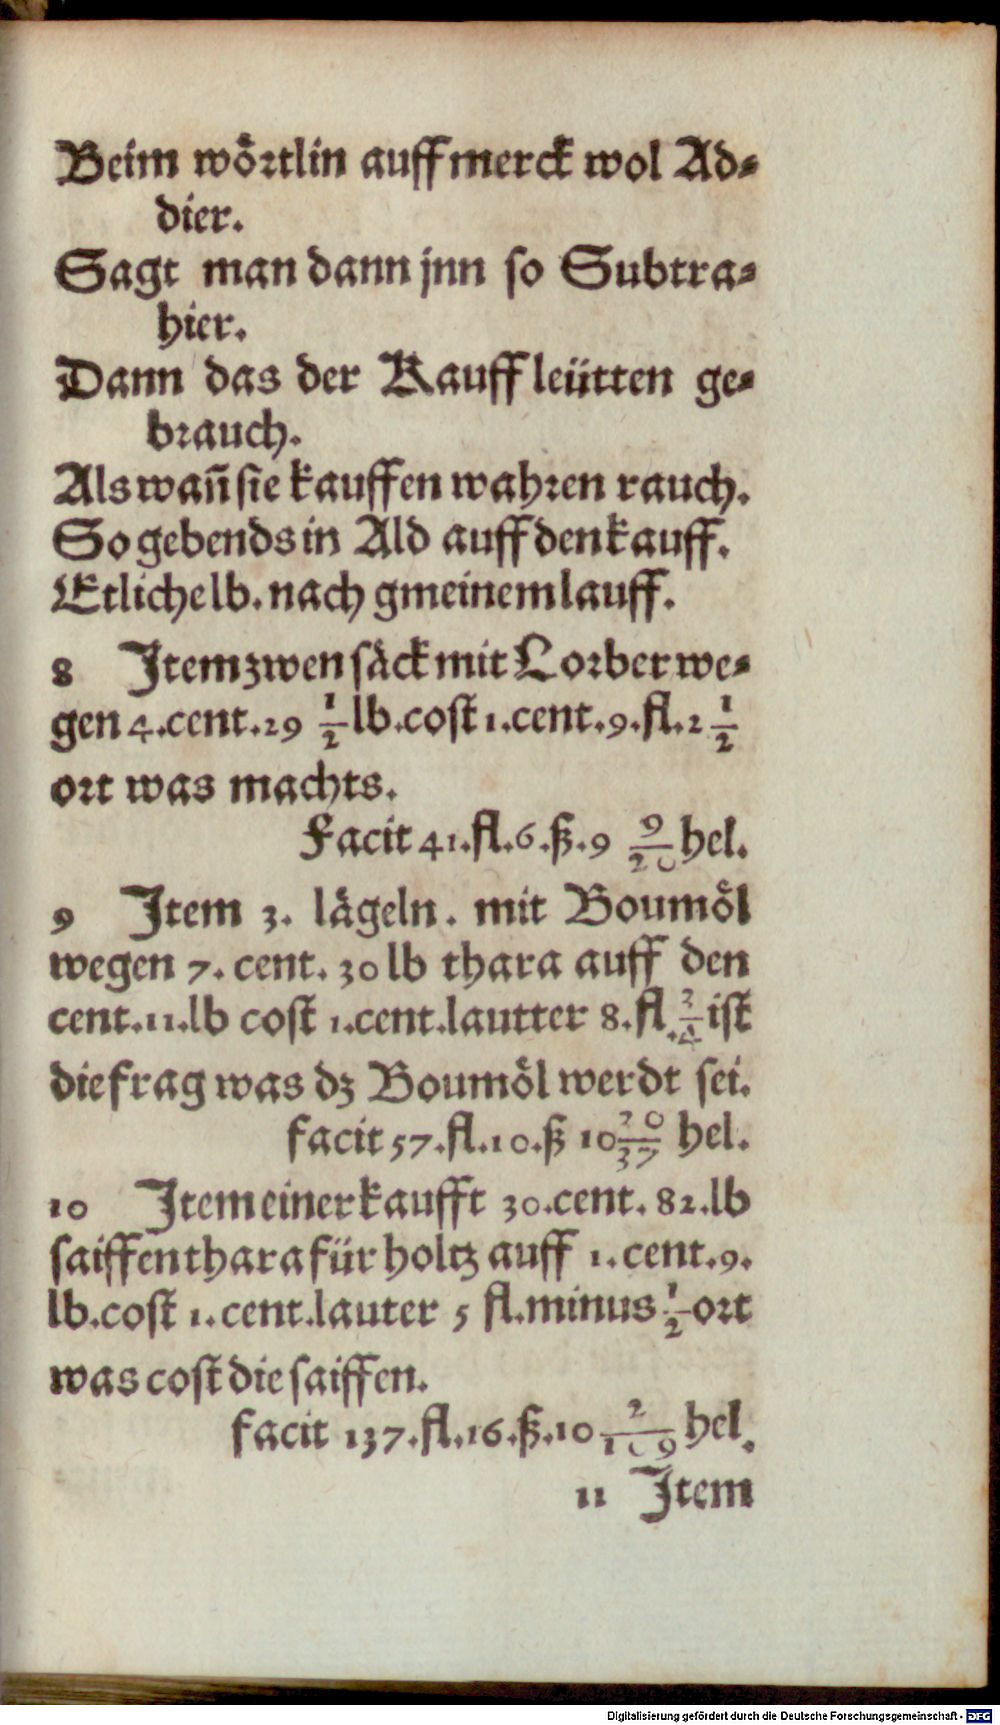 Beim wörtlin auff merck wol Ad⸗
dier.
Sagt man dann jnn so Subtra⸗
hier.
Dann das der Kauffleütten ge⸗
brauch.
Als wañ sie kauffen wahren rauch.
So gebends in Ald auff den kauff.
Etliche lb. nach gmeinem lauff.
8 Item zwen säck mit Lorber we⸗
gen 4. cent. 29 1/2 lb. cost 1. cent. 9. fl. 2 1/2
ort was machts.
Facit 41. fl. 6. ß. 9 9/20 hel.
9 Item 3. lägeln. mit Boumöl
wegen 7. cent. 30 lb thara auff den
cent. 11. lb cost 1. cent. lautter 8. fl. 3/4 ist
die frag was dz Boumöl werdt sei.
facit 57. fl. 10. ß 10 20/37 hel.
10 Item einer kaufft 30. cent. 82. lb
saiffen thara für holtz auff 1. cent. 9.
lb. cost 1. cent. lauter 5 fl. minus 1/2 ort
was cost die saiffen.
facit 137. fl. 16. ß. 10 2/109 hel.
11 Item
Digitalisierung gefördert durch die Deutsche Forschungsgemeinschaft - DFG